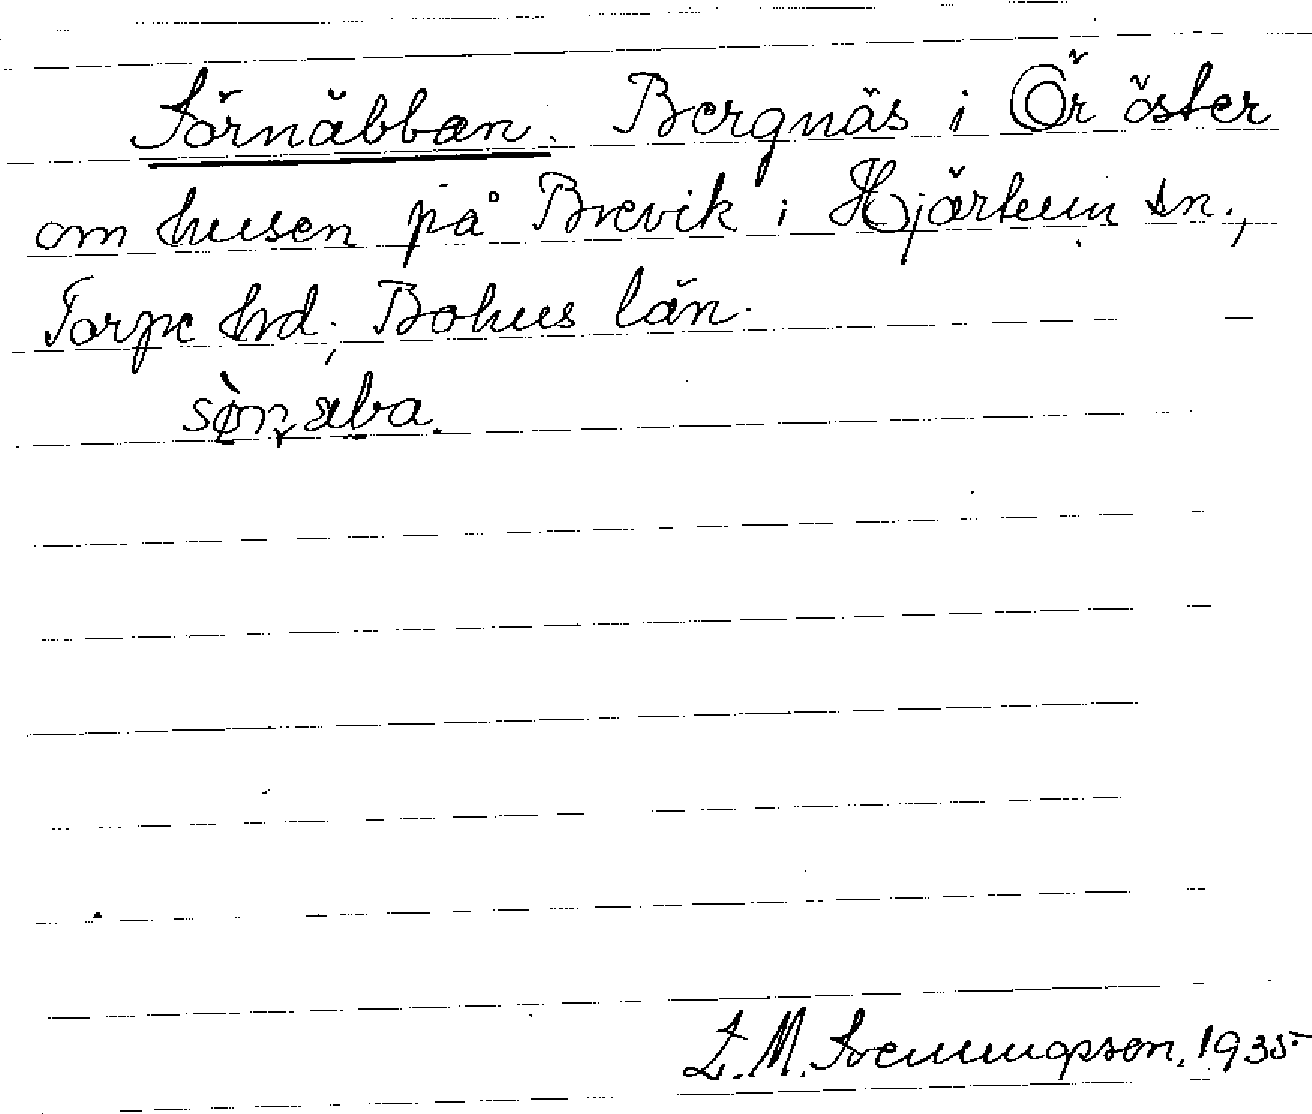 Sörnäbban. Bergnäs i Ör öster
om husen på Brevik i Hjärtum sn.,
Torpe hd, Bohus län.
sø̀n̨æba.
1935